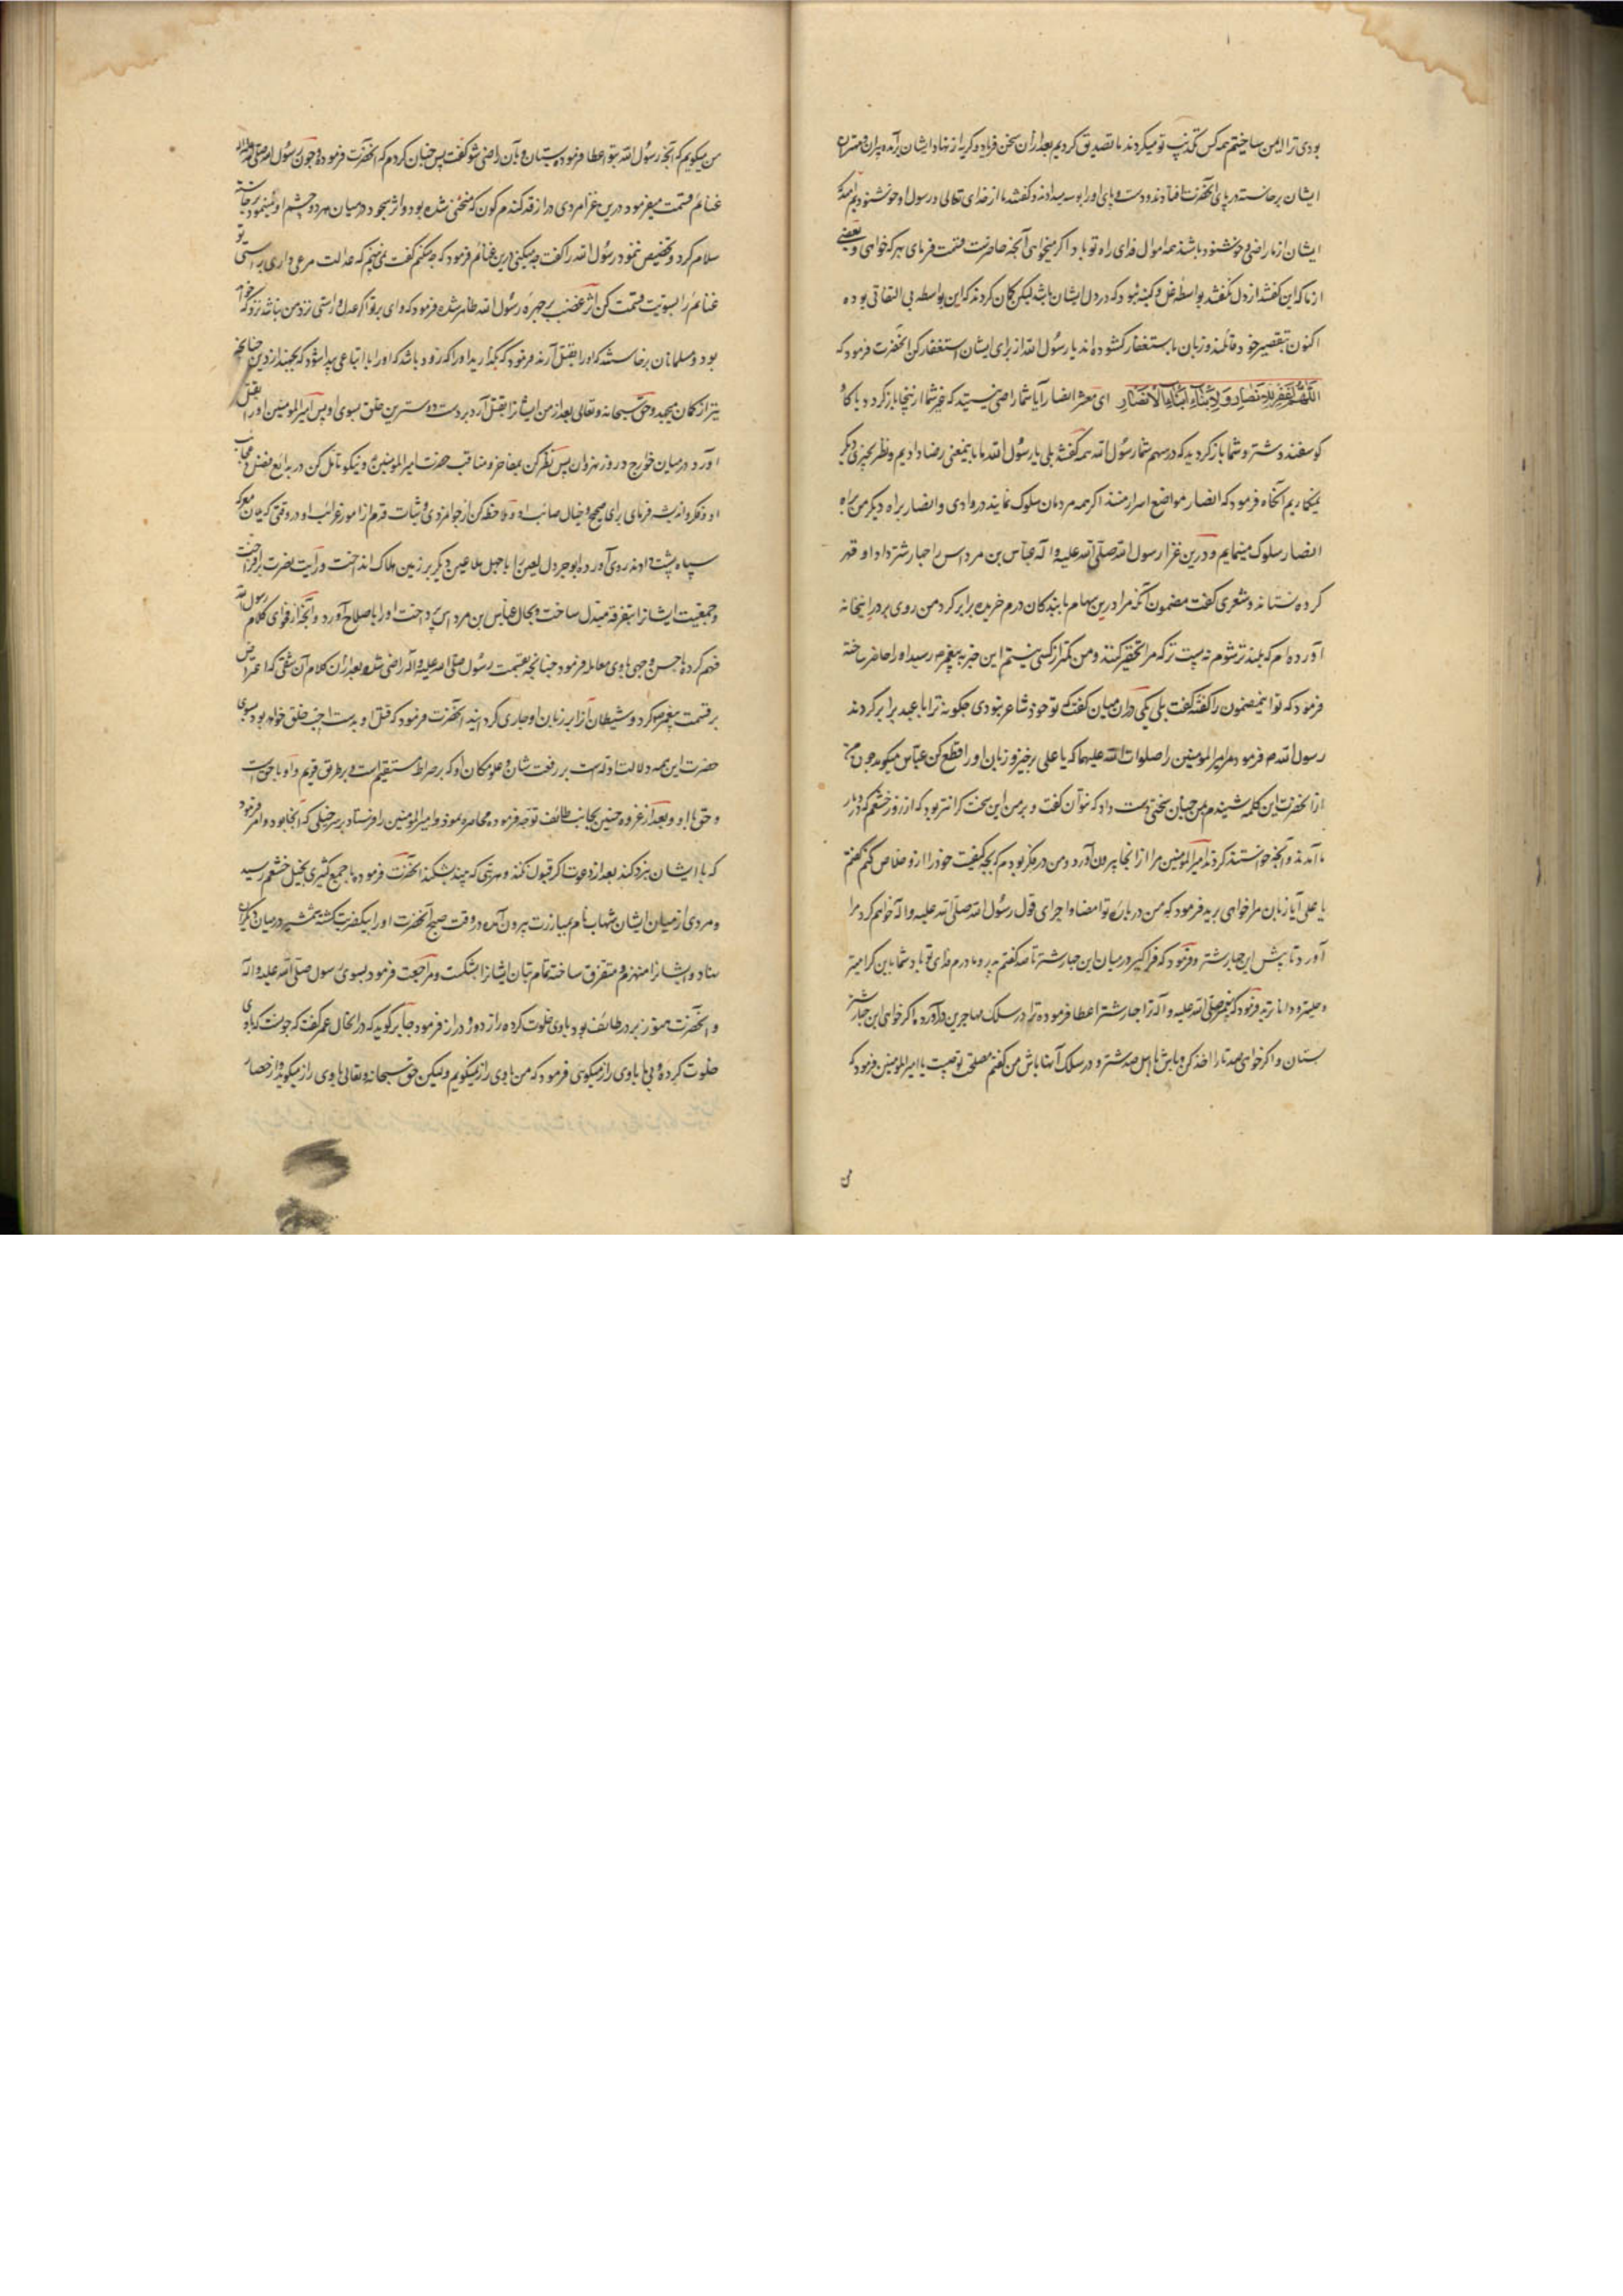 بودی ترا ایمن ساختیم همه کس تکذیب تو میکردند ما تصدیق کردیم بعد ازان سخن فریاد و کریه از نهاد ایشان برآمد پیران و مهتران
ایشان برخاستند در پای آنحضرت افتادند و دست و پای او را بوسه میدادند و کفتند ما از خدای تعالی و رسول او خوشنودیم
ایشان از ما راضی و خوشنود باشند همه اموال فدای راه تو باد اکر میخواهی آنچه حاضرست قسمت فرمای بهر که خواهی و بعضی
از ما که این کفتند از دل نکفتند بواسطه غل و کینه نبود که در دل ایشان باشد لیکن کمان کردند که این بواسطه بی التفاتی بوده
اکنون بتقصیر خود قائلند و زبان باستغفار کشوده اند یا رسول الله از برای ایشان استغفار کن آنحضرت فرمود که
اللهم اغفر للانصار و لابناء ابناء الانصار ای معشر انصار آیا شما راضی نیستید که غیر شما از اینجا باز کردد با
کوسفند و شتر و شما باز کردید که در سهم شما رسول الله همه کفتند بلی یا رسول الله ما باینمعنی رضا دادیم و نظر بچیزی دیکر
نمیکاریم آنکاه فرمود که انصار مواضع اسرار منند اکر همه مردمان سلوک نمایند در وادی و انصار براه دیکر من براه
انصار سلوک مینمایم و درین غزا رسول الله صلی الله علیه و اله عباس بن مرداس را چهار شتر داد او قهر
کرده نستاند و شعری کفت مضمون آنکه مرا درین سهام با بندکان درم خریده برابر کرد من روی بر در اینخانه
آورده ام که بلند تر شوم نه پست تر که مرا تحقیر کنند و من کمتر از کسی نیستم این خبر به پیغمبر رسید او را حاضر ساخته
فرمود که تو اینمضمون را کفته کفت بلی یکی دران میان کفت که تو خود شاعر نبودی چکونه ترا با عبید برابر کردند
رسول الله م فرمود مر امیر المومنین را صلوات الله علیهما که یا علی برخیز و زبان او را قطع کن عباس میکوید چون من
از آنحضرت این کلمه شنیدم بمن چنان سختی دست داد که نتوان کفت و بر من این سخن کرانتر بود که از روز خثعم که در دیار
ما آمدند و آنچه خواستند کردند امیر المومنین مرا از آنجا بیرون آورد و من در فکر بودم که بچه کیفیت خود را ازو خلاص کنم کفتم
یا علی آیا زبان مرا خواهی برید فرمود که من در باره تو امضا و اجرای قول رسول الله صلی الله علیه و اله خواهم کرد مرا
آورد تا پیش این چهار شتر و فرمود که فرا کیر در میان این چهار شتر تا صد کفتم پدر و مادرم فدای تو باد شما باین کرامید
و حلیمید و داناترید فرمود که پیغمبر صلی الله علیه و اله ترا چهار شتر اعطا فرموده ترا در سلک مهاجرین درآورد اکر خواهی این چهار شتر
بستان و اکر خواهی صد تا را اخذ کن و باش با اهل صد شتر و در سلک آنها باش من کفتم مصلحت تو چیست یا امیر المومنین فرمود که
من میکویم که آنچه رسول الله بتو اعطا فرموده بستان و بآن راضی شو کفت پس چنان کردم که آنحضرت فرمود و چون رسول الله صلی الله علیه واله
غنائم قسمت میفرمود درین غزا مردی دراز قد کندم کون که منحنی شده بود و اثر سجود در میان هر دو چشم او مینمود برخاسته
سلام کرد و تخصیص ننمود رسول الله را کفت چه میکنی درین غنائم فرمود که چه میکنم کفت نمی بینم که عدالت مرعی داری براستی تو
غنائم را بسویت قسمت کن اثر غضب بر چهره رسول الله ظاهر شده فرمود که وای بر تو اکر عدل و راستی نزد من نباشد نزد که خواهد
بود و مسلمانان برخاستند که او را بقتل آرند فرمود که بکذارید او را که زود باشد که او را با اتباعی پیدا شود که بجهند از دین چنانچه
تیر از کمان میجهد و حق سبحانه و تعالی بعد از من ایشانرا بقتل آرد بر دست دوسترین خلق بسوی او پس امیر المومنین او را بقتل
آورد در میان خوارج در روز نهروان پس نظر کن بمفاخر و مناقب حضرت امیر المومنین و نیکو تامل کن در بدایع فضل و عجایب
او و فکر و اندیشه فرمای برای صحیح و خیال صائب او و ملاحظه کن از جوانمردی و ثبات قدم از امور غرائب او در وقتی که میان معرکه
سپاه پشت دادند روی آورده ابو جرول لعین را با چهل ملاعین دیکر بر زمین هلاک انداخت و رایت نصرت برافراخت
و جمعیت ایشانرا بتفرقه مبتدل ساخت و بحال عباس بن مرداس پرداخت او را باصلاح آورد و آنچه از فحوای کلام رسول الله
فهم کرده باحسن وجهی با وی معامله فرمود چنانچه بقسمت رسول صلی الله علیه و اله راضی شد و بعد ازان کلام آن شقی که اعتراض
بر قسمت پیغمبر کرد و شیطان آنرا بر زبان او جاری کردانید آنحضرت فرمود که قتل او بدست احب خلق خواهد بود بسوی
حضرت این همه دلالت اوست بر رفعت شان و علو مکان او که بر صراط مستقیم است و بر طریق قویم و او با حق است
و حق با او و بعد از غزوه حنین بجانب طائف توجه فرموده محاصره نمود و امیر المومنین را فرستاد بر سر خیلی که آنجا بود و امر فرمود
که با ایشان نبرد کند بعد از دعوت اکر قبول نکنند و هر بتی که بیند بشکند آنحضرت فرموده با جمع کثیری بخیل خثعم رسید
و مردی از میان ایشان شهاب نام بمبارزت بیرون آمد در وقت صبح آنحضرت او را بیکضربت کشته شمشیر در میان دیکران
نهاد و ایشانرا منهزم و متفرق ساخته تمام بتان ایشانرا بشکست و مراجعت فرمود بسوی رسول صلی الله علیه و اله
و آنحضرت هنوز بر در طائف بود با وی خلوت کرده راز دور و دراز فرمود جابر کوید که در آنحال عمر کفت که چونست که با وی
خلوت کرده و بی ما با وی راز میکوئی فرمود که من با وی راز نمیکویم ولیکن حق سبحانه و تعالی با وی راز میکوید و از حصار